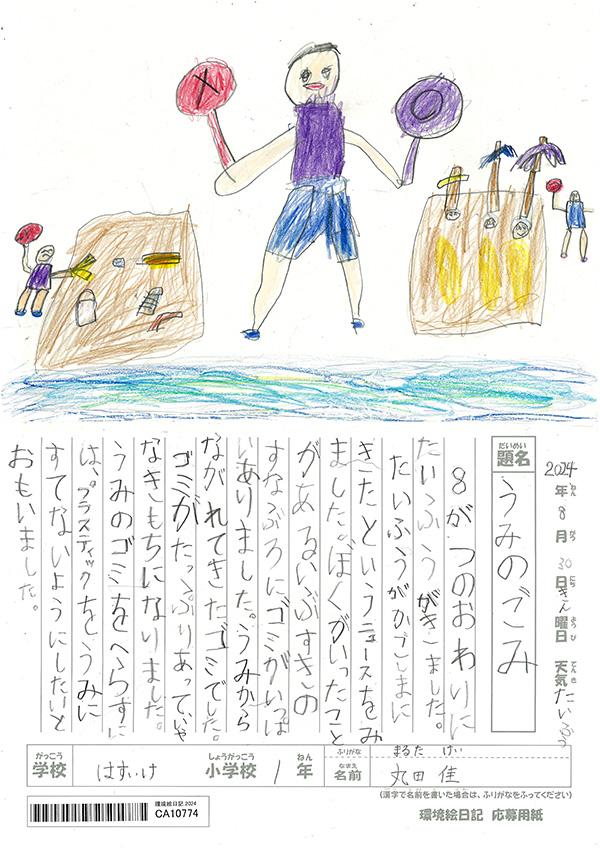 2024年8月30日きん曜日 天気たいふう
題名 うみのごみ
8がつのおわりに
たいふうがきました。
たいふうがかごしまに
きたというニュースをみ
ました。ぼくがいったこと
があるいぶすきの
すなぶろにゴミがいっぱ
いありました。うみから
ながれてきたゴミでした。
ゴミがたっぷりあって、いや
なきもちになりました。
うみのゴミをへらすに
は、プラスティックをうみに
すてないようにしたいと
おもいました。
がっこう しょうがっこう ねん ふりがな まるた けい
学校 はすいけ 小学校 1年 名前 丸田 佳
(漢字で名前を書いた場合は、ふりがなをふってください)
環境絵日記.2024
CA10774
環境絵日記 応募用紙